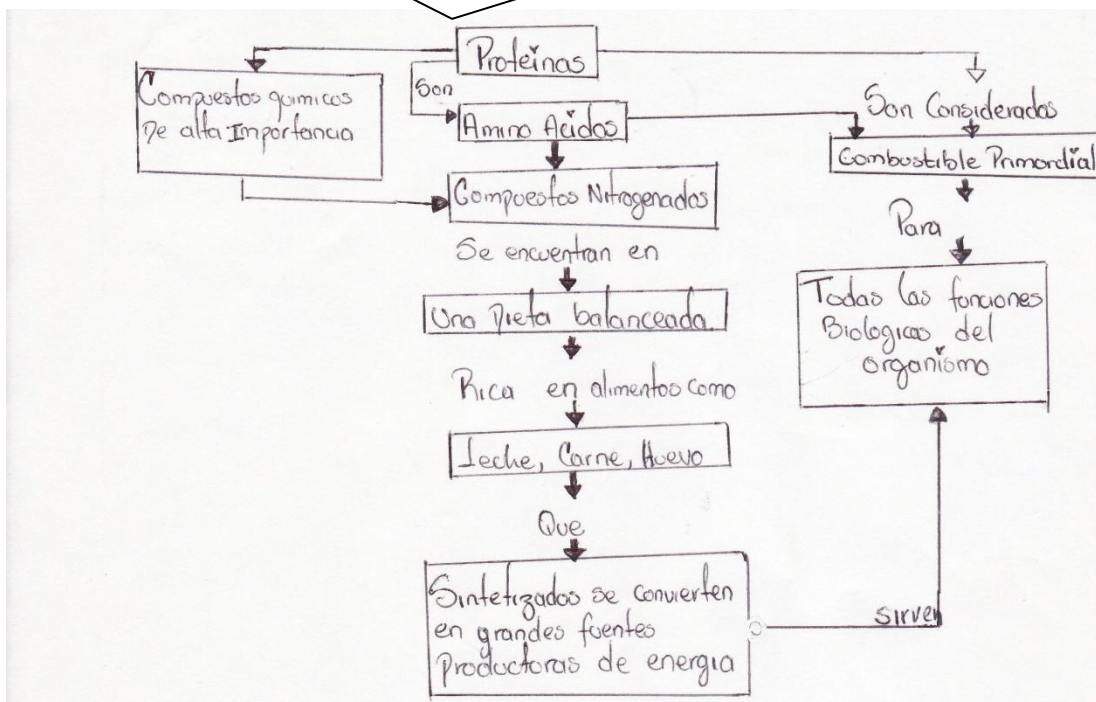 Proteinas
Compuestos quimicos
De alta Importancia
Son
Amino Acidos
Son Considerados
Combustible Primordial
Compuestos Nitrogenados
Para
Se encuentran en
Una Dieta balanceada.
Todas las funciones
Biologicas del
organismo
Rica en alimentos como
Leche, Carne, Huevo
Que
Sintetizados se convierten
en grandes fuentes
Productoras de energia
sirven